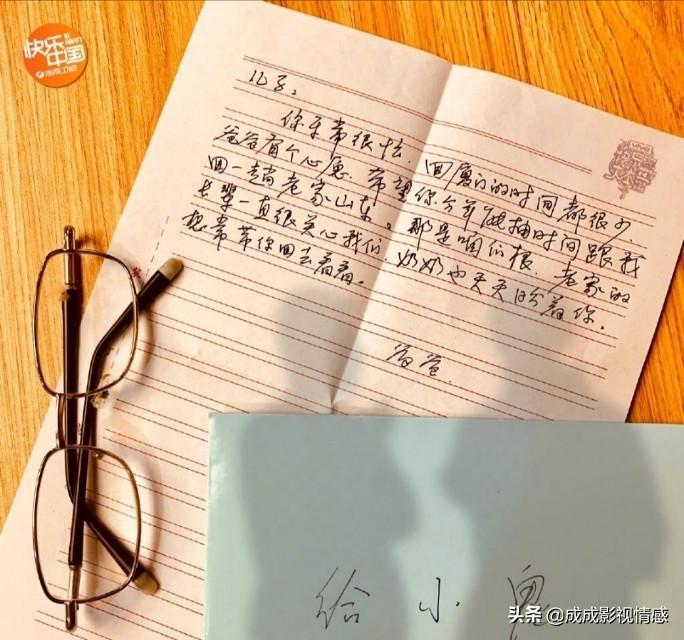 快乐中国
湖南卫视
儿子:
你平常很忙. 回厦门的时间都很少,
爸爸有个心愿. 希望你今年能抽时间跟我
回一趟老家山东。那是咱们根. 老家的
长辈一直很关心我们, 奶奶也天天盼着你.
想常带你回去看看。
爸爸.
给小鬼
头条 @成成影视情感